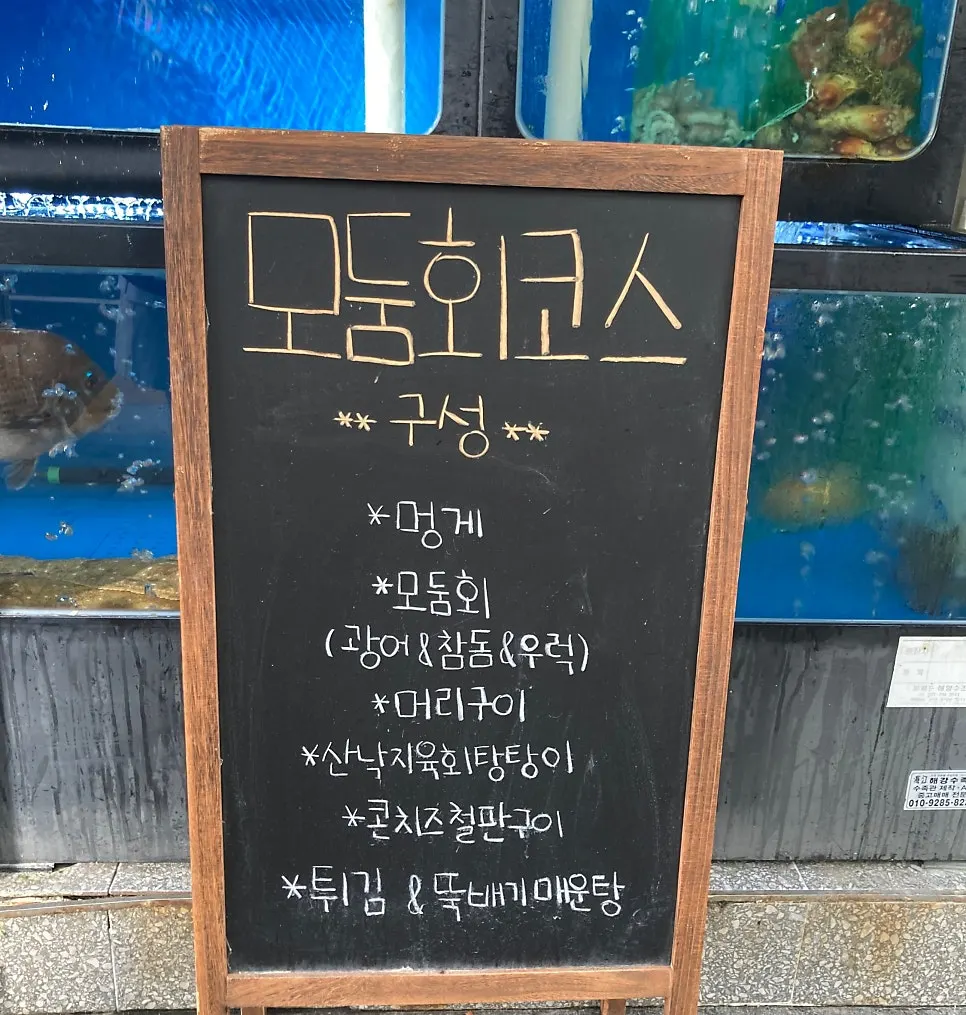 모둠회코스
** 구성 **
*멍게
*모둠회
(광어&참돔&우럭)
*머리구이
*산낙지육회탕탕이
*콘치즈철판구이
*튀김 & 뚝배기매운탕
해강수족
수족관 제작・A
중고매매 전문
010-9285-82